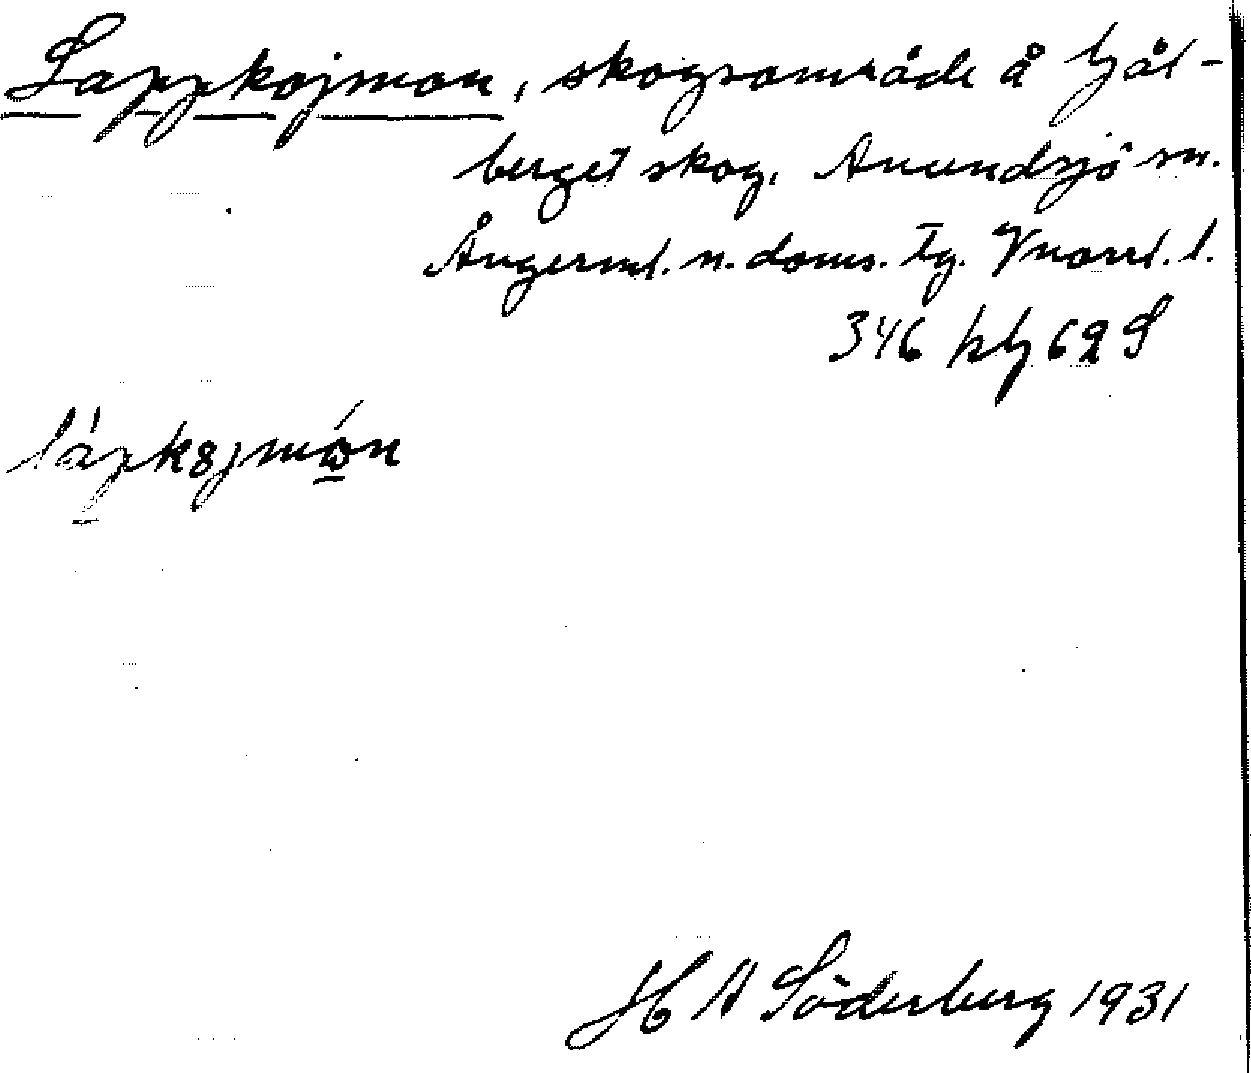 Lappkojmon, skogsområde å Tjäl-
berget skog, Anundsjö sn.
Ångerml. n. doms. tg. Vnorrl. l.
346 62 S
lápkojmón
H A Söderberg 1931